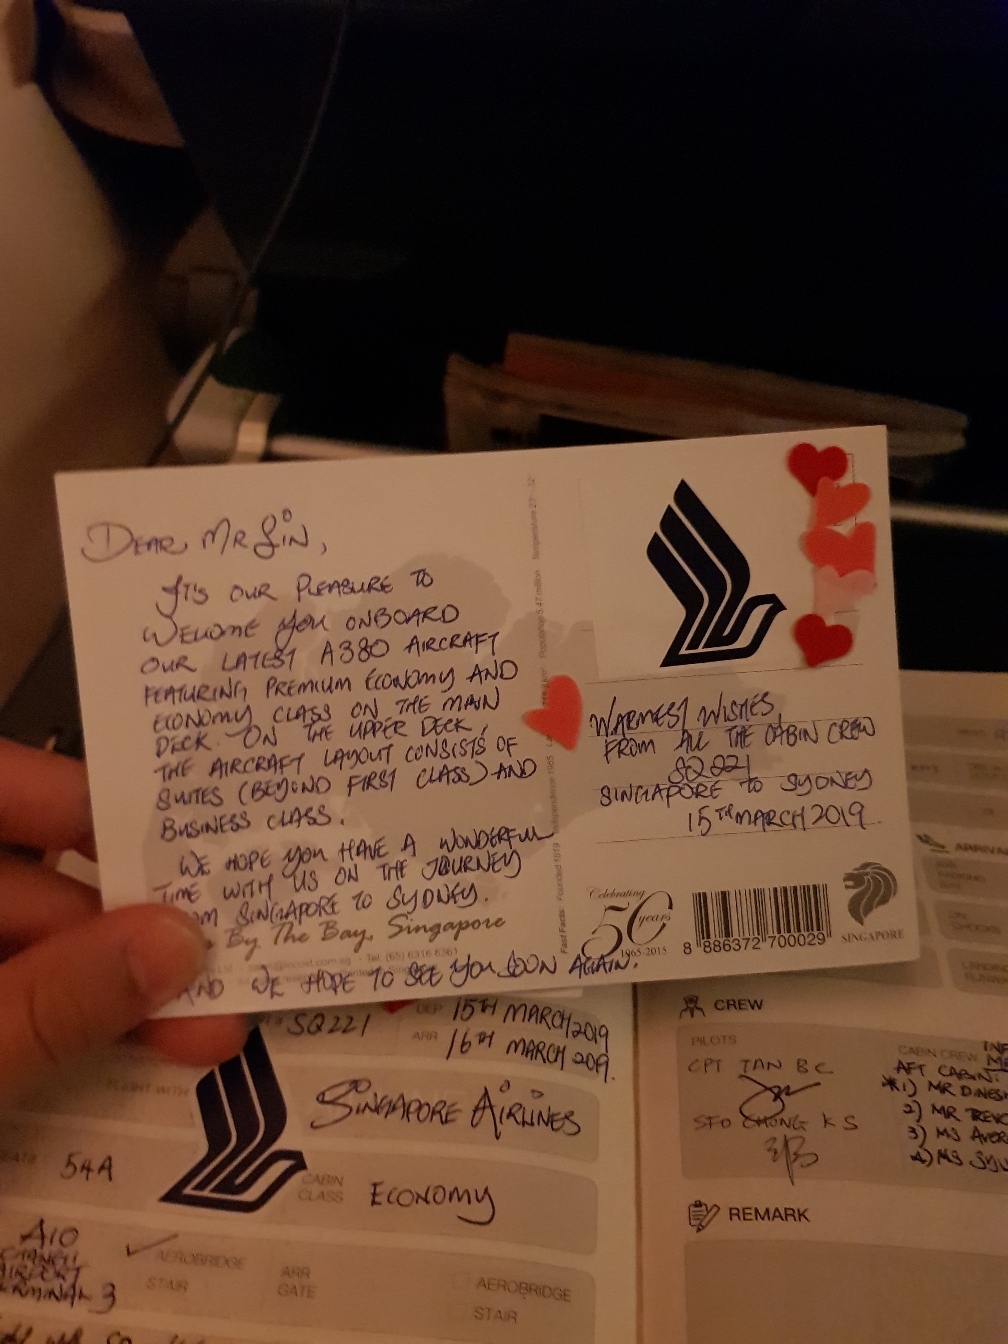 DEAR MR SIN,
IT'S OUR PLEASURE TO
WELCOME YOU ONBOARD
OUR LATEST A380 AIRCRAFT
FEATURING PREMIUM ECONOMY AND
ECONOMY CLASS ON THE MAIN
DECK. ON THE UPPER DECK,
THE AIRCRAFT LAYOUT CONSISTS OF
SUITES (BEYOND FIRST CLASS) AND
BUSINESS CLASS.
WE HOPE YOU HAVE A WONDERFUL
TIME WITH US ON THE JOURNEY
SINGAPORE TO SYDNEY.
By The Bay, Singapore
Tel. (65) 6316 6361
AND WE HOPE TO SEE YOU SOON AGAIN.
Fast Facts: Founded 1819
Population 5.47 million
WARMEST WISHES,
FROM ALL THE CABIN CREW
SQ221
SINGAPORE TO SYDNEY
15TH MARCH 2019
Celebrating
50 years
1965-2015
8 886372 700029
SINGAPORE
SQ221
DEP 15TH MARCH 2019
ARR 16TH MARCH 2019.
FLIGHT WITH
SINGAPORE AIRLINES
54A
CABIN
CLASS
ECONOMY
A10
CHANGI
AIRPORT
TERMINAL 3
AEROBRIDGE
STAIR
ARR
GATE
AEROBRIDGE
STAIR
CREW
PILOTS
CPT TAN BC
SFO CHONG KS
CABIN CREW
AFT CABIN:
*1) MR DINESH
2) MR
3) MS
4) MS
REMARK